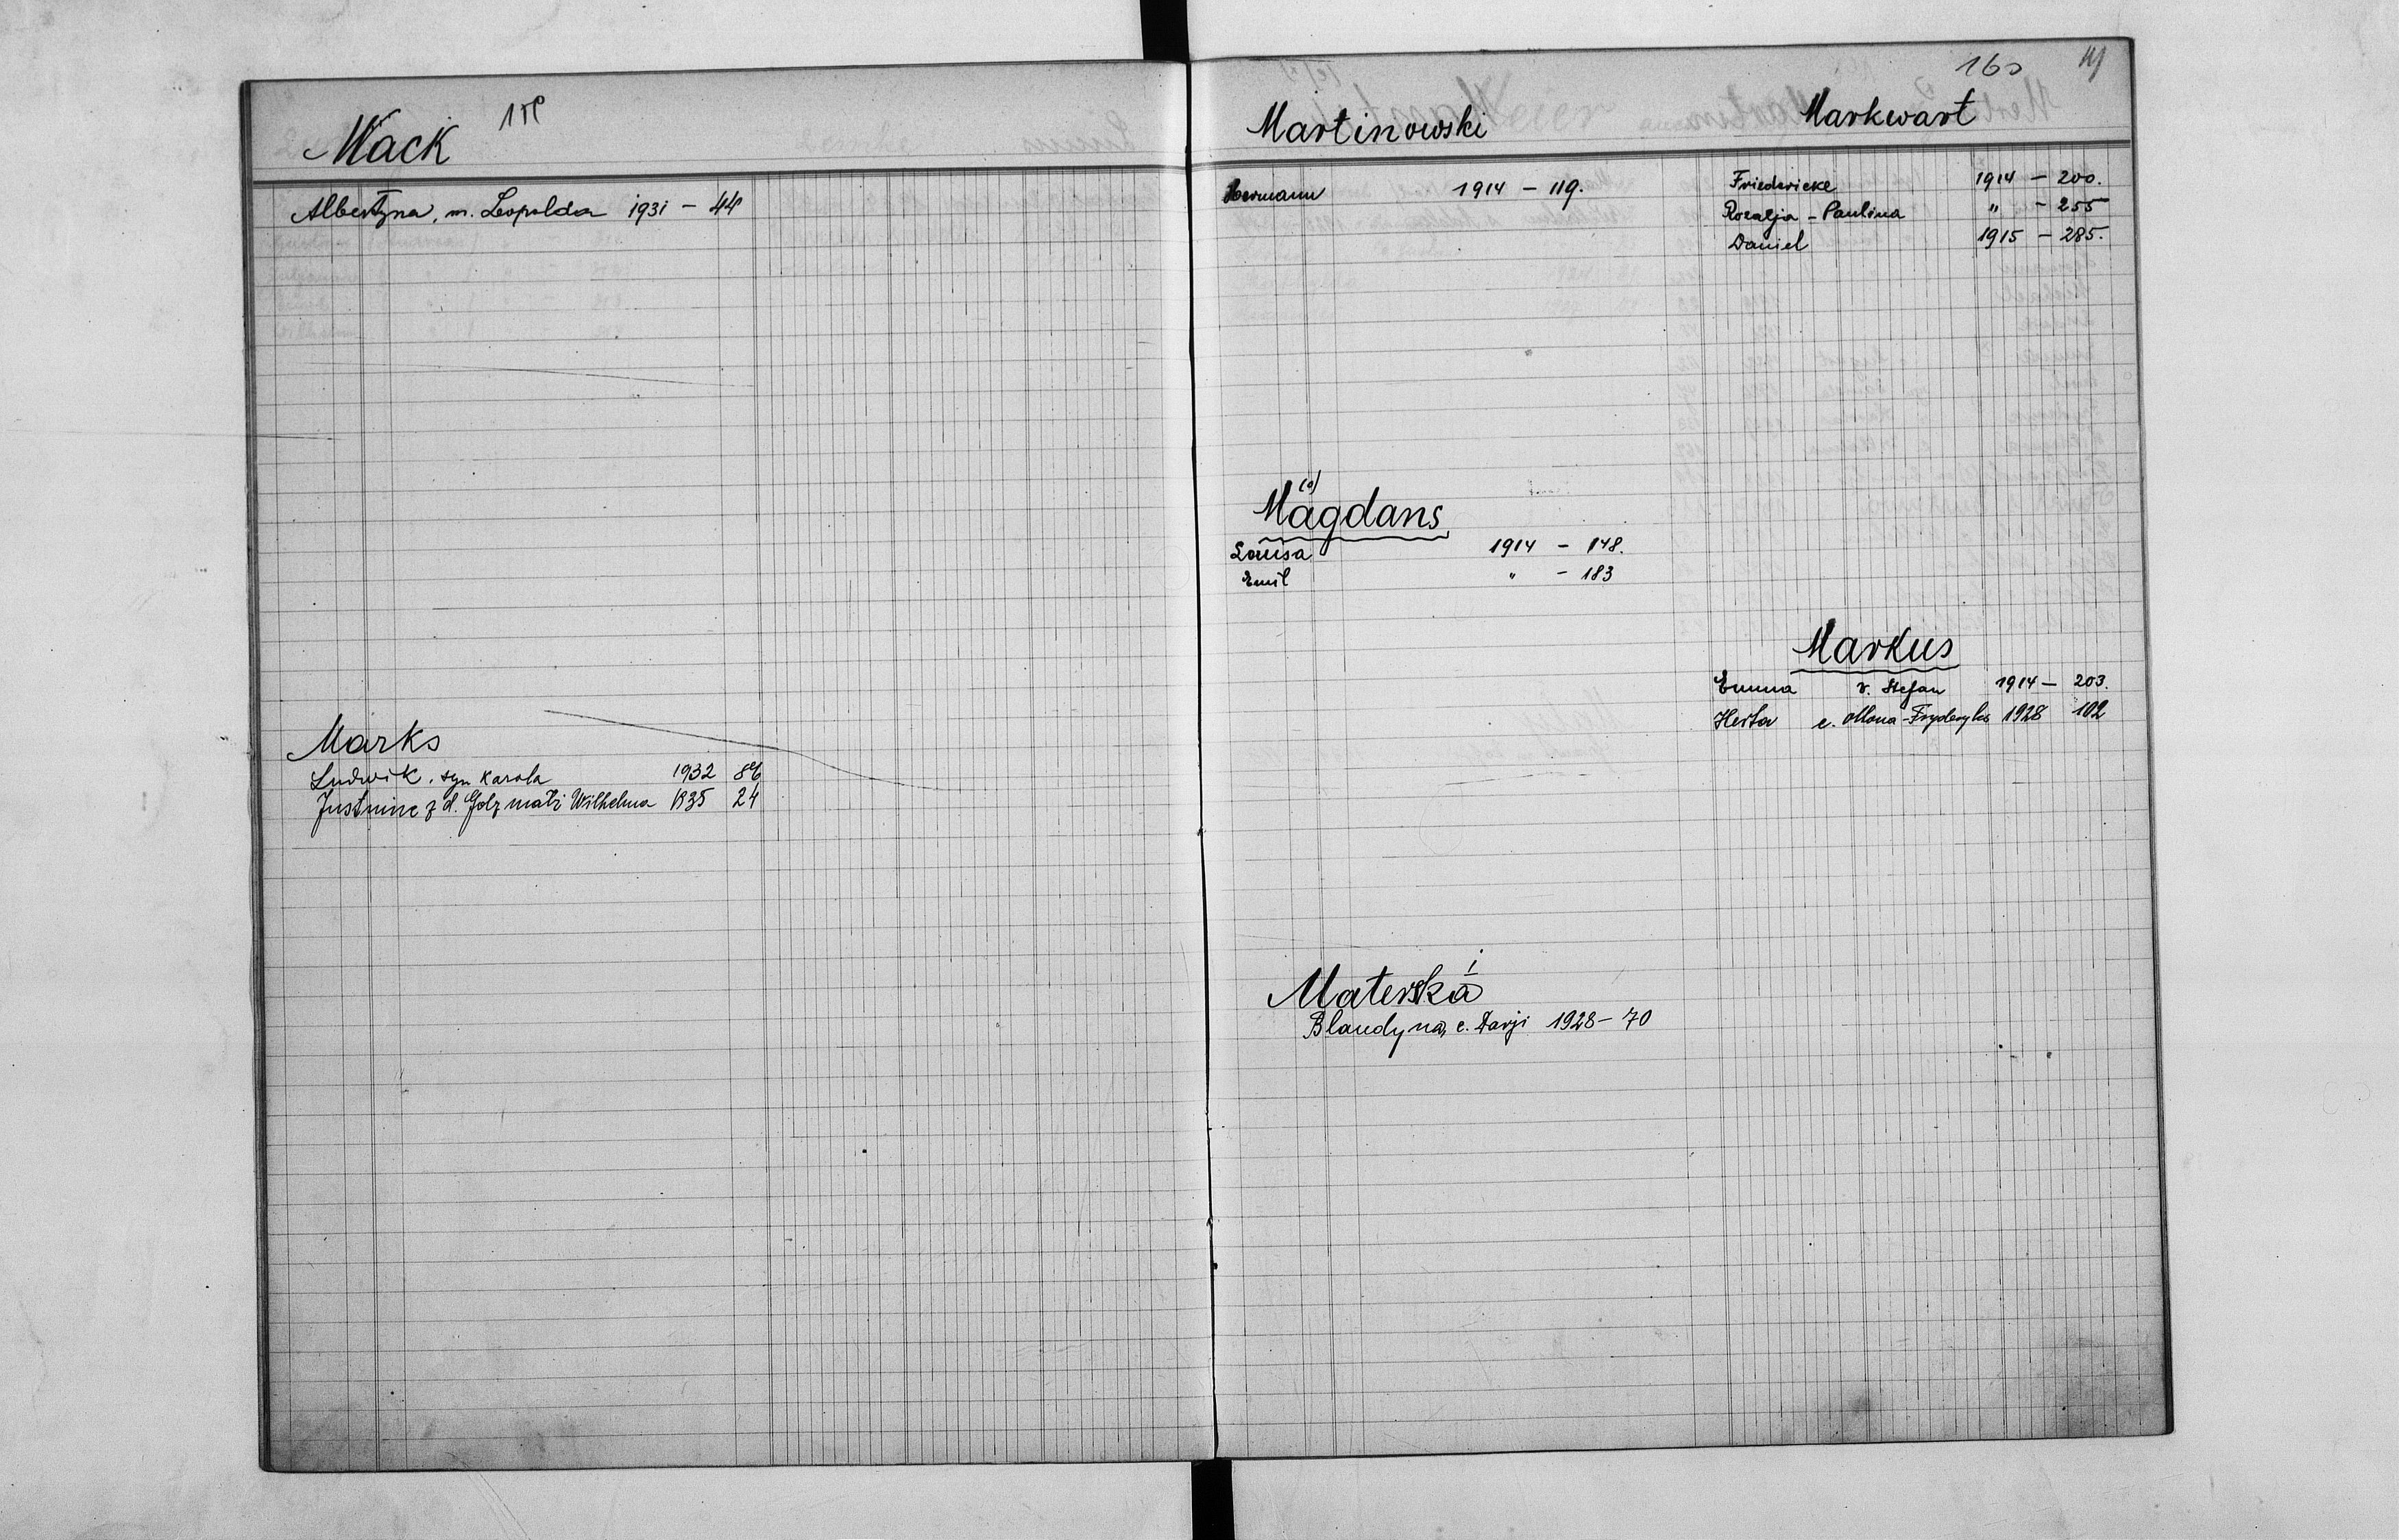 Mack
Albertyna, m. Leopolda 1931 - 44
Marks
Ludwik, syn Karola 1932 86
Justine z d. Golz matż Wilhelma 1935 24
160
Martinowski
Hermann 1914 - 119.
(a)
Mägdans
Louisa 1914 - 148.
Emil " - 183
i
Materska
Blandyna, c. Darji 1928 - 70
Markwart
Friedericke 1914 - 200.
Rozalja - Paulina " - 255
Daniel 1915 - 285.
Markus
Emma v. Stefan 1914 - 203.
Herta c. 1928 102